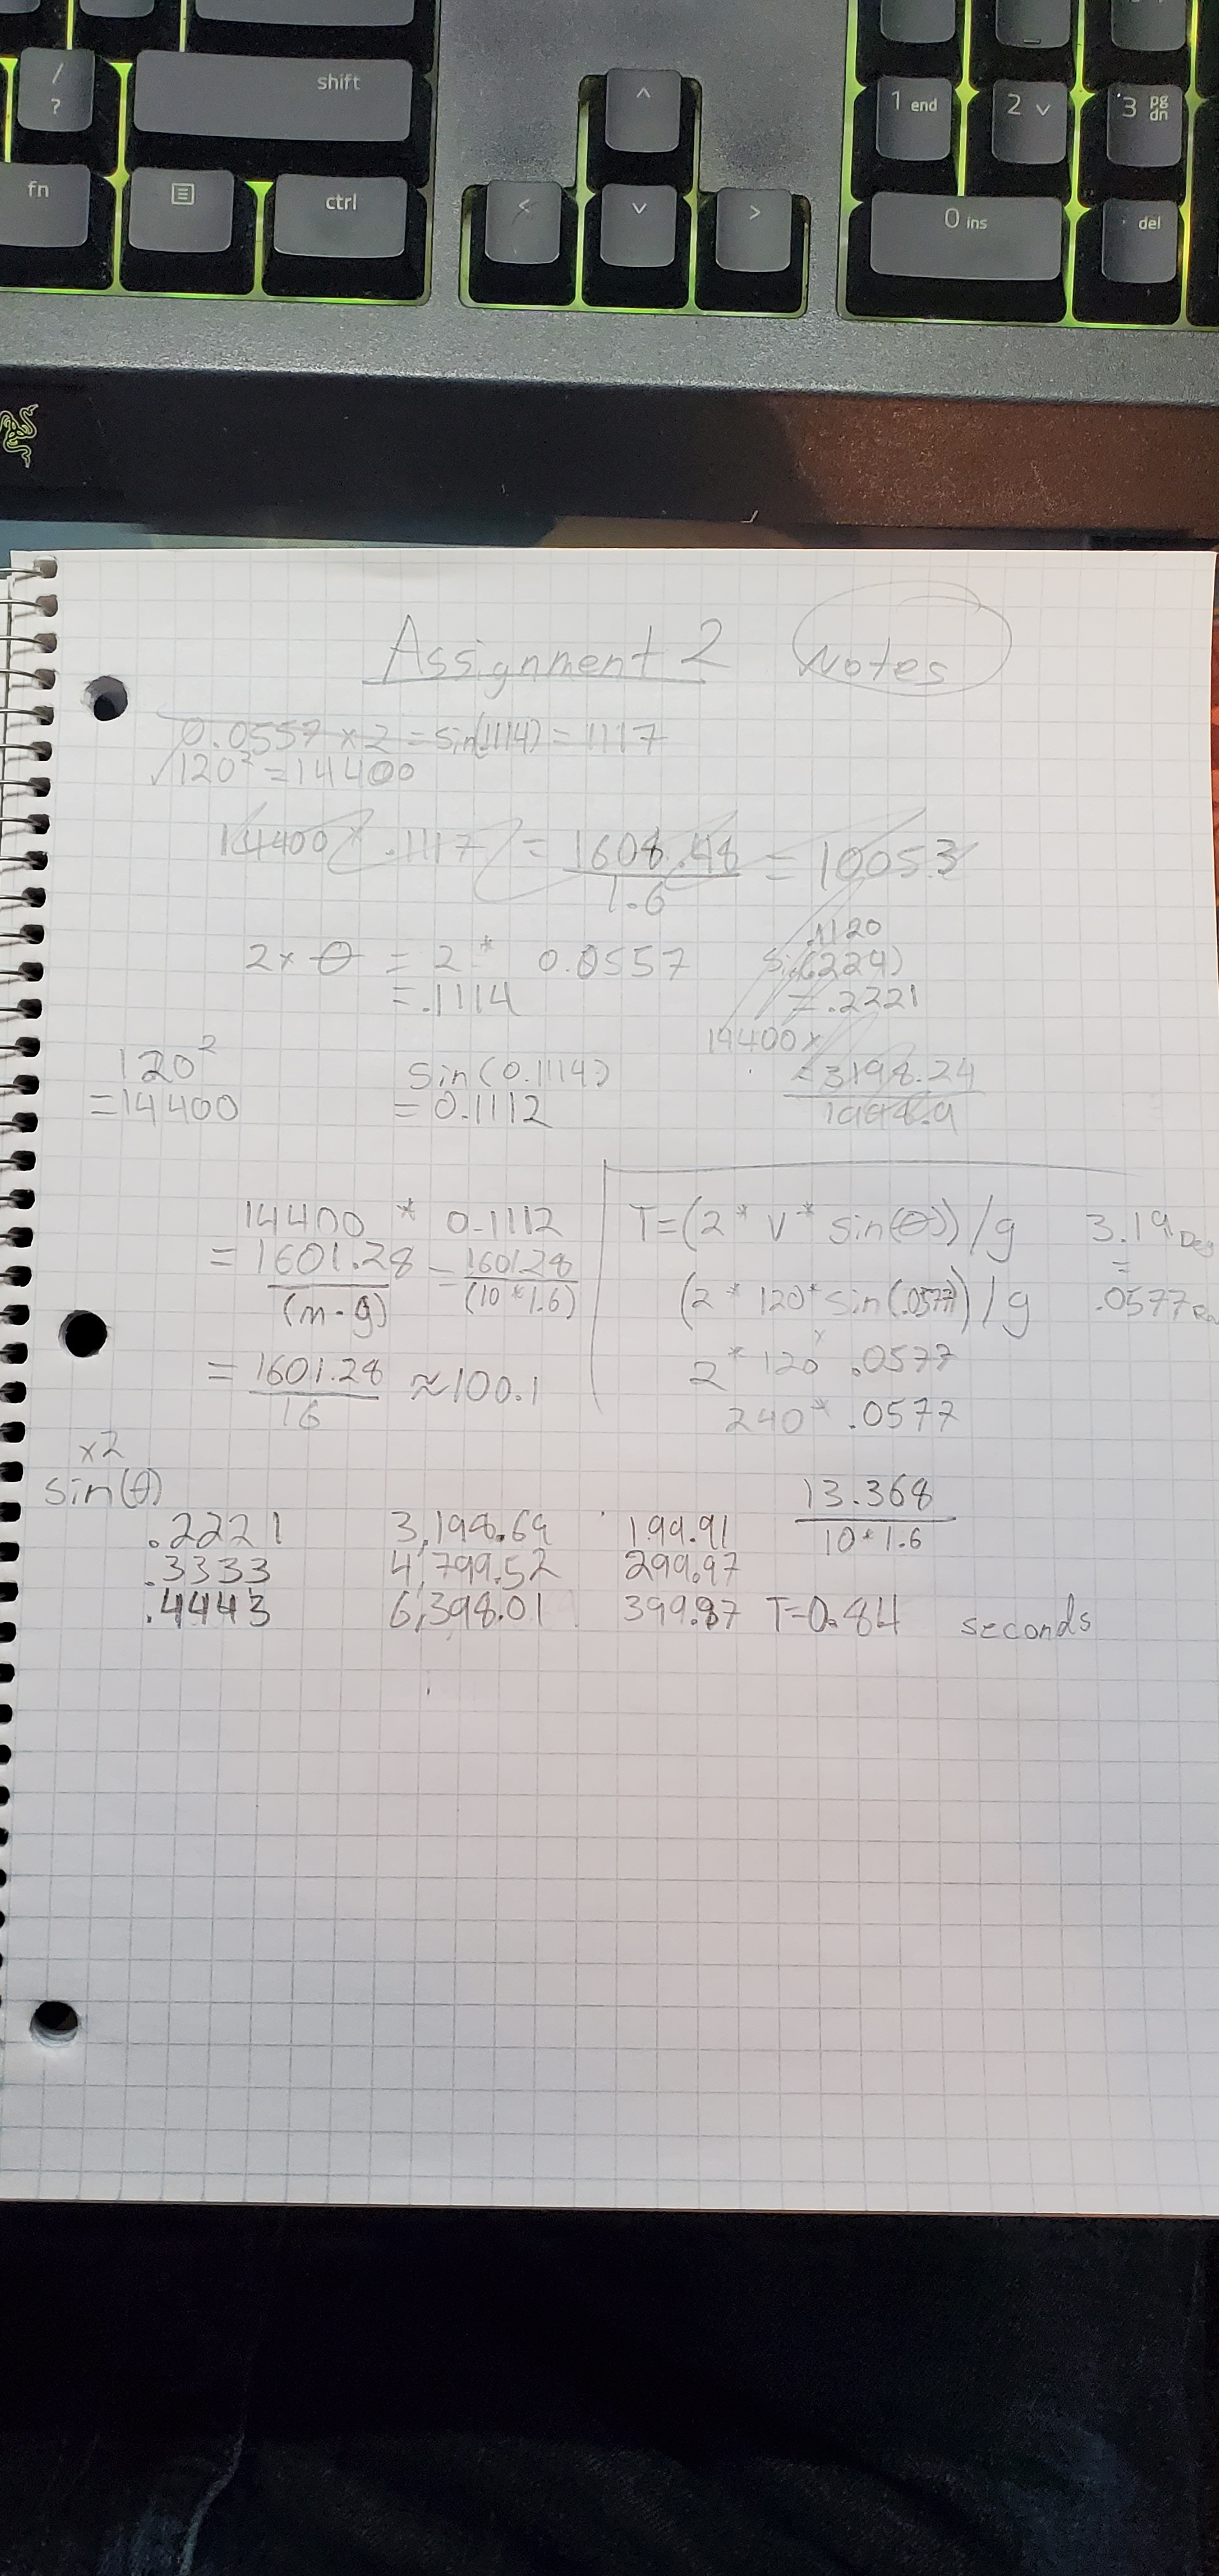 /
?
shift
^
1 end
2 v
3 pg dn
fn
ctrl
<
v
>
0 ins
del
Assignment 2 Notes
0.0557 x 2 = sin(1114) = 1117
120² = 14400
14400 * .1117 = 1608.48 = 1005.3
1.6
2 x θ = 2 * 0.0557
= .1114
.1120
= .2221
14400 x
120²
= 14400
sin(0.1114)
= 0.1112
3198.24
14400 * 0.1112
= 1601.28 = 1601.28
(m · g) (10 * 1.6)
= 1601.28 ≈ 100.1
16
T=(2 * V * sin(θ))/g 3.19 Deg
=
(2 * 120 * sin(.0577))/g .0577
2 * 120 * .0577
240 * .0577
x2
sin(θ)
13.368
10 * 1.6
.2221 3,198.69 199.91
.3333 4,799.52 299.97
.4443 6,398.01 399.87 T=0.84 seconds